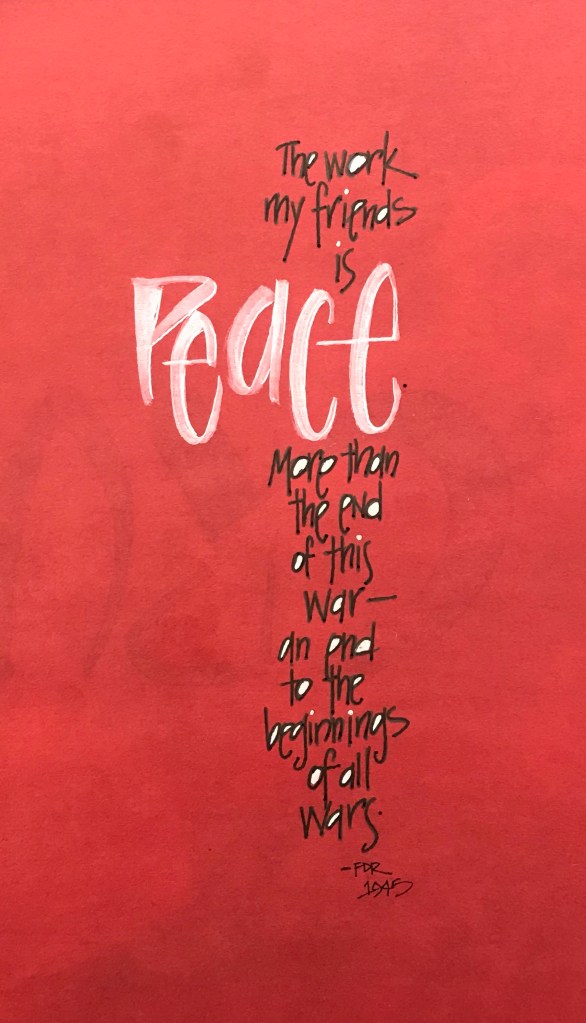 The work
my friends
is
Peace.
More than
the end
of this
war—
an end
to the
beginnings
of all
wars.
-FDR
1945